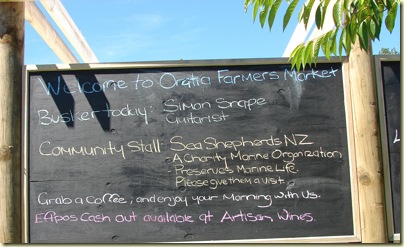 Welcome to Oratia Farmers Market
Busker today: Simon Snape
Guitarist
Community Stall Sea Shepherds NZ
- A Charity Marine Organization
- Preserves Marine Life.
Please give them a visit.
Grab a coffee, and enjoy your Morning with Us.
Eftpos Cash out available at Artisan Wines.